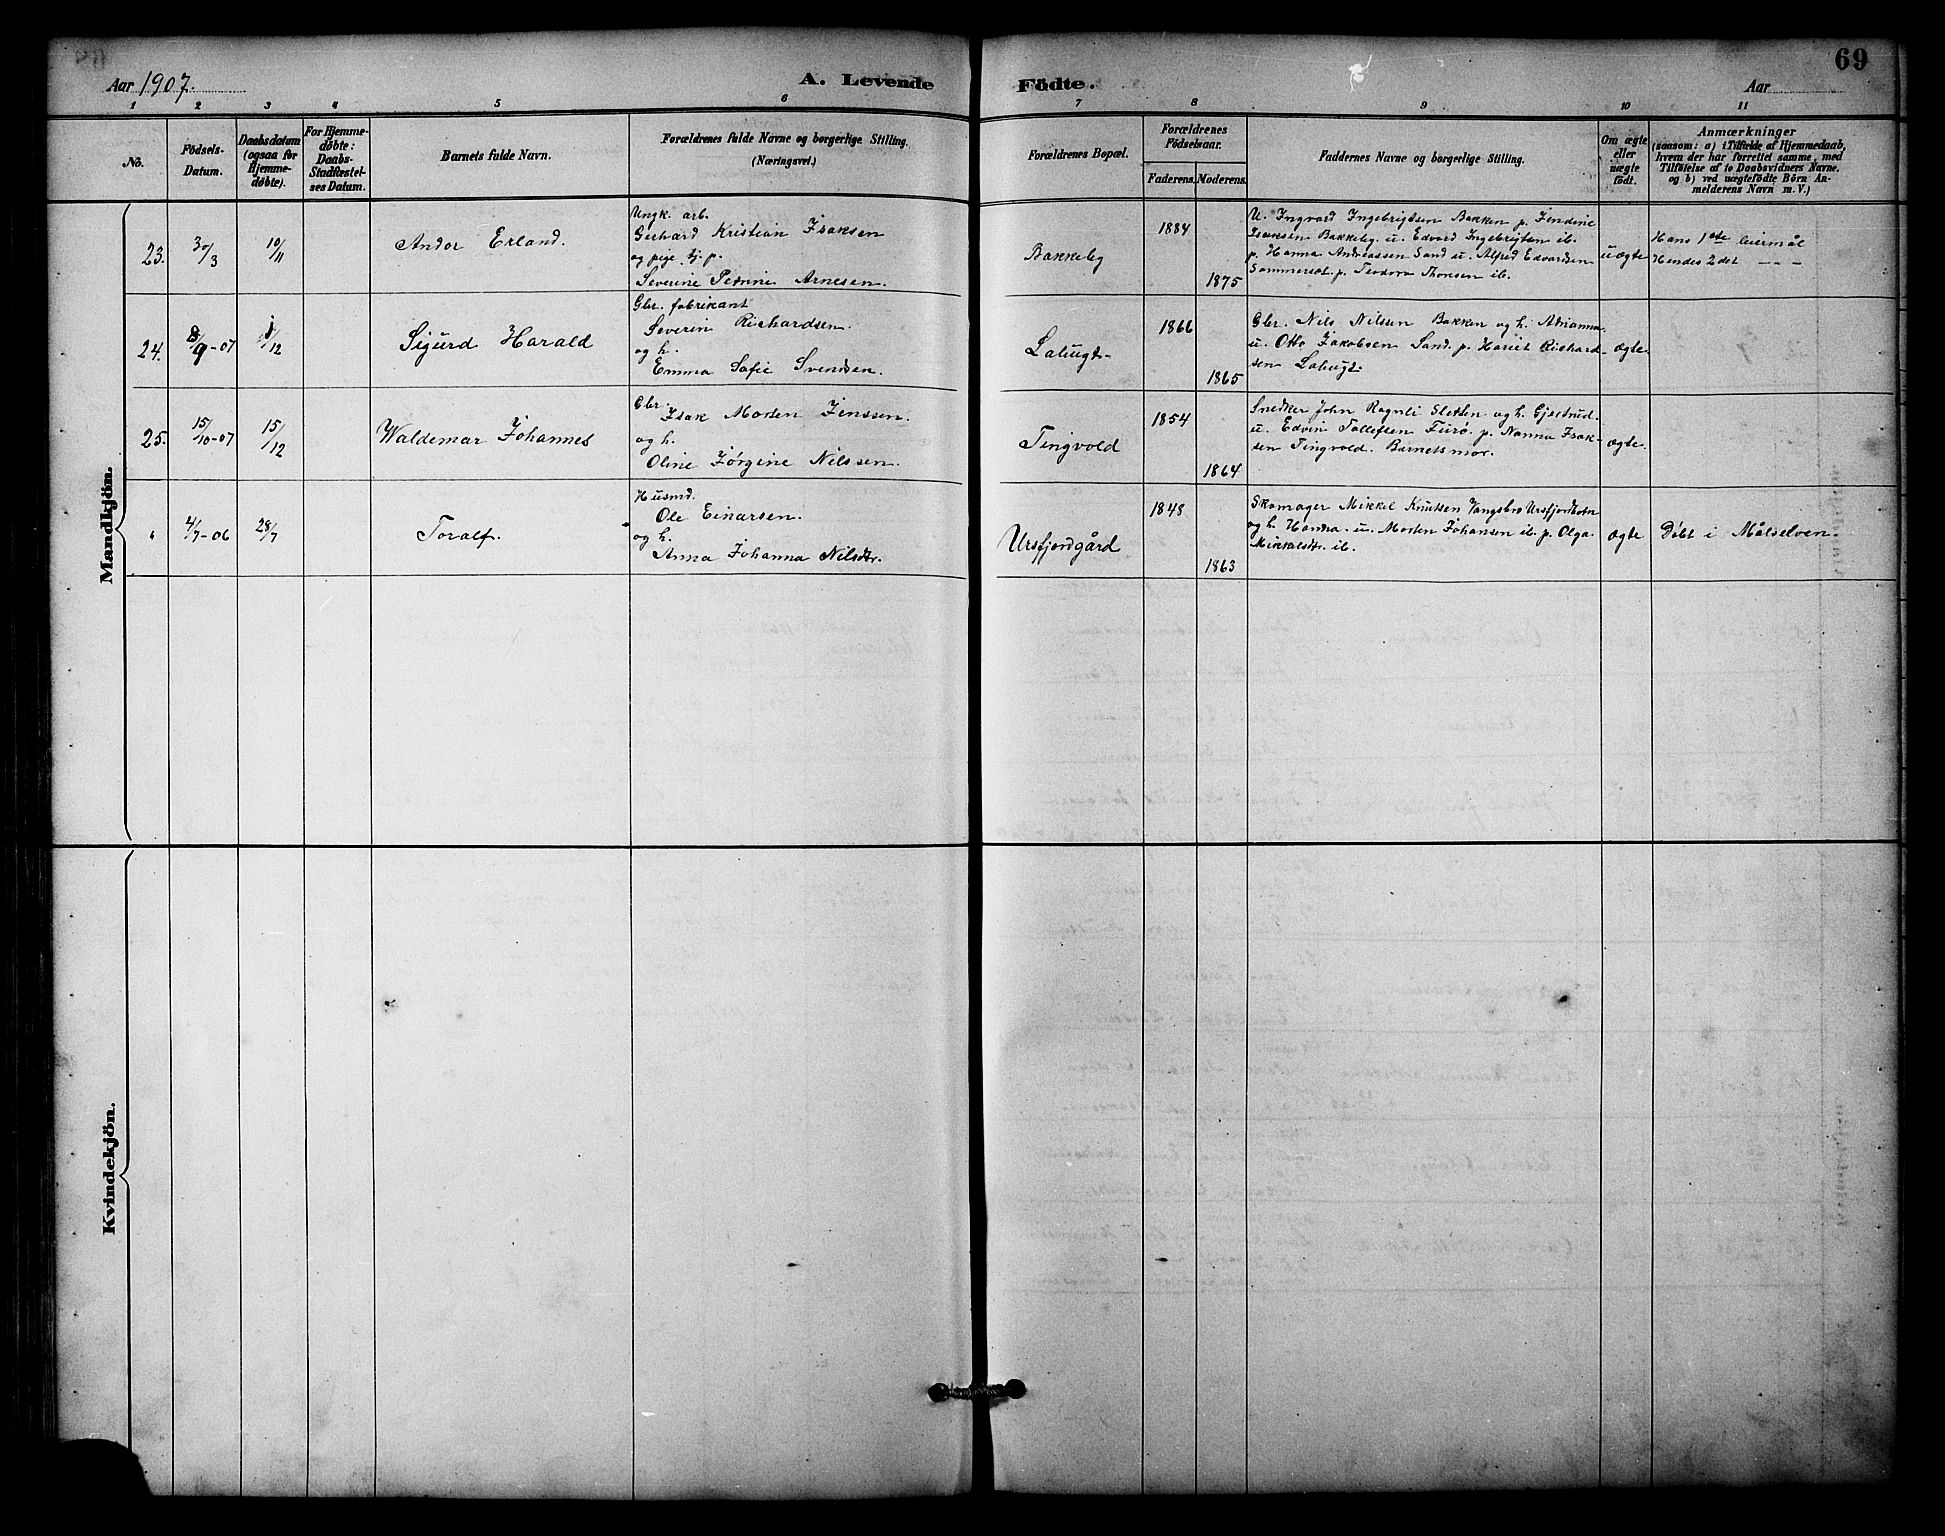 69
Aar 1907.
A. Levende Födte.
Aar
1 2 3 4 5 6 7 8 9 10 11
No.
Födsels-
Datum.
Daabsdatum
(ogsaa for
Hjemme-
døbte).
For Hjemme-
døbte:
Daabs-
Stadfæstel-
ses Datum.
Barnets fulde Navn.
Forældrenes fulde Navne og borgerlige Stilling.
(Næringsvei.)
Forældrenes Bopæl.
Forældrenes
Födselsaar.
Faderens. Moderens.
Faddernes Navne og borgerlige Stilling.
Om ægte
eller
uægte
født.
Anmærkninger
(saasom: a) i Tilfælde af Hjemmedaab,
hvem der har forrettet samme, med
Tilföielse af to Daabsvidners Navne,
og b) ved uægtefödte Börn An-
melderens Navn m. V.)
Mandkjön.
23. 30/3 10/11 Andor Erland.
Ungk. arb.
Gerhard Kristian Isaksen
og pige tj. p.
Severine Petrine Arnesen.
Bakkeby
1884
1875
U. Ingvard Ingebrigtsen Bakken p. Jendine
Isaksen Bakkeby u. Edvard Ingebrigtsen ib.
p. Hanna Andreassen Sand u. Alfred Edvardsen
Sommersæt p. Teodora Thoresen ib.
uægte
Hans 1ste leiermål
Hendes 2det — — —
24. 8/9-07 1/12 Sigurd Harald
Gbr. fabrikant
Severin Richardsen.
og h.
Emma Sofie Svendsen.
Lalugt-
1866
1865
Gbr. Nils Nilsen Bakken og h. Adrianna.
u. Otto Jakobsen Sand. p. Hariet Richard-
sen Lalugt.
ægte.
25. 15/10-07 15/12 Waldemar Johannes
Gbr.
Isak Morten Jenssen.
og h.
Oline Jørgine Nilssen.
Tingvold
1854
1864
Snedker John Rognli Sletten og h. Gjertrud.
u. Edvin Tollefsen Furö. p. Nanna Isak-
sen Tingvold. Barnets mor.
ægte.
" 4/7-06 28/7 Toralf.
Husmd.
Ole Einarsen.
og h.
Anna Johanna Nilsdtr.
Ursfjordgård
1848
1863
Skomager Mikkel Knutsen Vangsbro Ursfjordbotn
og h. Handra. u. Morten Johansen ib. p. Olga
Mikkelsdtr. ib.
ægte
Döbt i Målselven.
Kvindekjön.